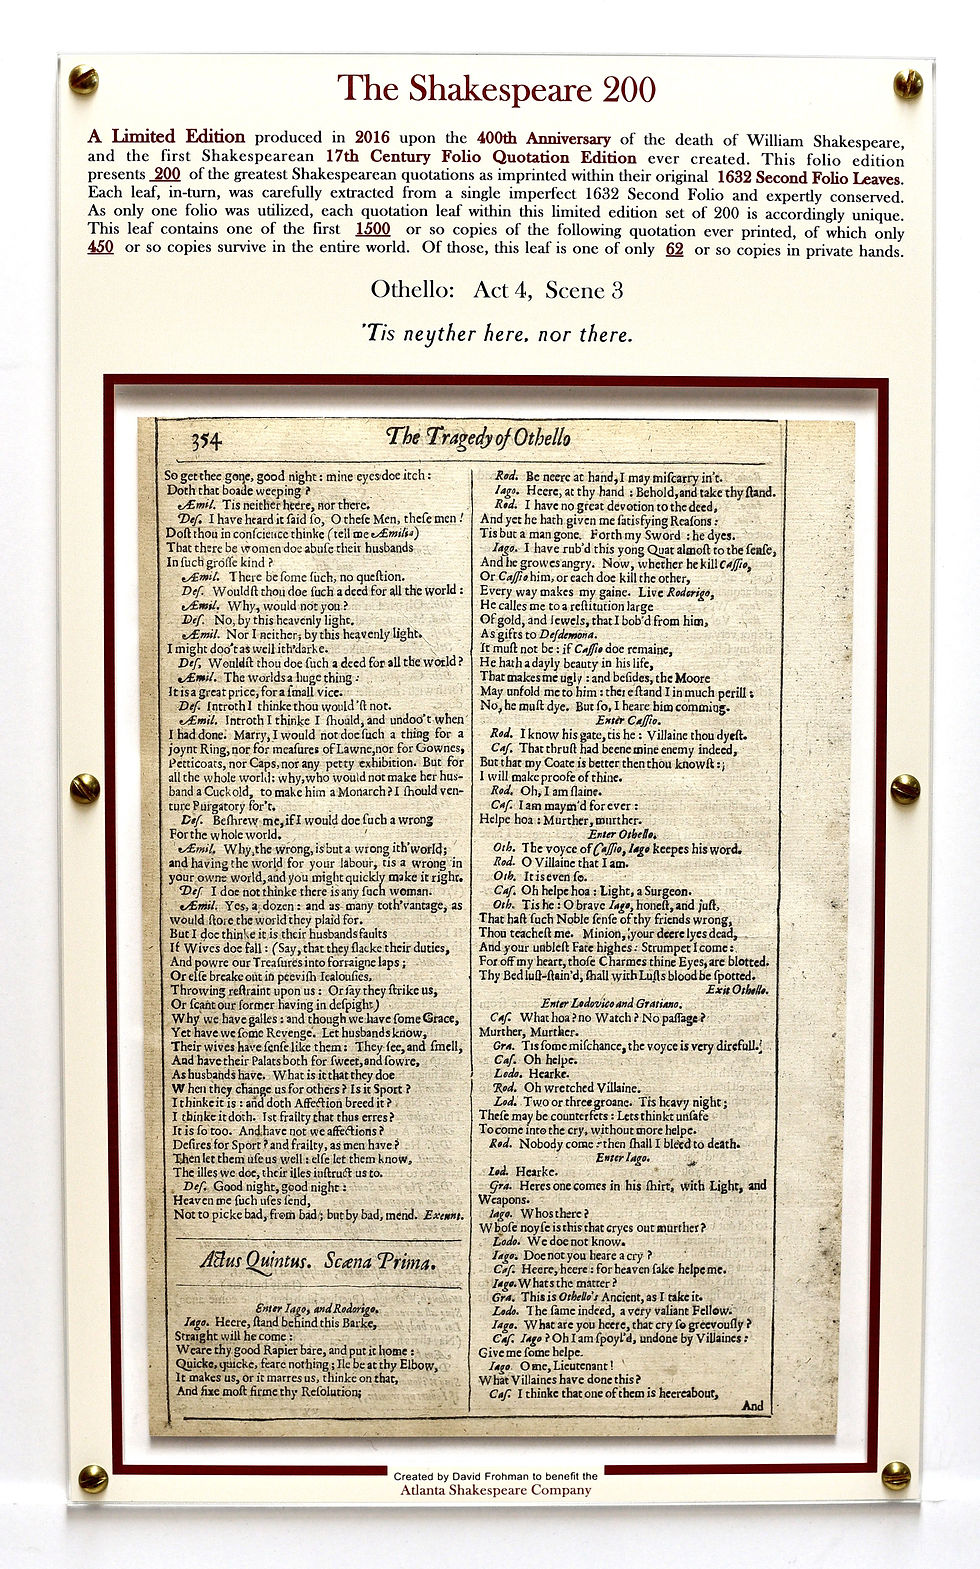 The Shakespeare 200
A Limited Edition produced in 2016 upon the 400th Anniversary of the death of William Shakespeare,
and the first Shakespearean 17th Century Folio Quotation Edition ever created. This folio edition
presents 200 of the greatest Shakespearean quotations as imprinted within their original 1632 Second Folio Leaves.
Each leaf, in-turn, was carefully extracted from a single imperfect 1632 Second Folio and expertly conserved.
As only one folio was utilized, each quotation leaf within this limited edition set of 200 is accordingly unique.
This leaf contains one of the first 1500 or so copies of the following quotation ever printed, of which only
450 or so copies survive in the entire world. Of those, this leaf is one of only 62 or so copies in private hands.
Othello: Act 4, Scene 3
'Tis neyther here, nor there.
354 The Tragedy of Othello
So get thee gone, good night: mine eyes doe itch:
Doth that boade weeping?
Æmil. Tis neither heere, nor there.
Des. I have heard it ſaid ſo, O theſe Men, theſe men!
Doſt thou in conſcience thinke (tell me Æmilia)
That there be women doe abuſe their husbands
In ſuch groſſe kind?
Æmil. There be ſome ſuch, no queſtion.
Deſ. Wouldſt thou doe ſuch a deed for all the world:
Æmil. Why, would not you?
Deſ. No, by this heavenly light.
Æmil. Nor I neither; by this heavenly light.
I might doo't as well ith'darke.
Deſ. Wouldſt thou doe ſuch a deed for all the world?
Æmil. The worlds a huge thing:
It is a great price, for a ſmall vice.
Deſ. Introth I thinke thou would'ſt not.
Æmil. Introth I thinke I ſhould, and undoo't when
I had done. Marry, I would not doe ſuch a thing for a
joynt Ring, nor for meaſures of Lawne, nor for Gownes,
Petticoats, nor Caps, nor any petty exhibition. But for
all the whole world: why, who would not make her hus-
band a Cuckold, to make him a Monarch? I ſhould ven-
ture Purgatory for't.
Deſ. Beſhrew me, if I would doe ſuch a wrong
For the whole world.
Æmil. Why, the wrong, is but a wrong ith'world;
and having the world for your labour, tis a wrong in
your owne world, and you might quickly make it right.
Deſ I doe not thinke there is any ſuch woman.
Æmil. Yes, a dozen: and as many toth'vantage, as
would ſtore the world they plaid for.
But I doe thinke it is their husbands faults
If Wives doe fall: (Say, that they ſlacke their duties,
And powre our Treaſures into forraigne laps;
Or elſe breake out in peeviſh Iealouſies.
Throwing reſtraint upon us: Or ſay they ſtrike us,
Or ſcant our former having in deſpight)
Why we have galles: and though we have ſome Grace,
Yet have we ſome Revenge. Let husbands know,
Their wives have ſenſe like them: They ſee, and ſmell,
And have their Palats both for ſweet, and ſowre,
As husbands have. What is it that they doe
When they change us for others? Is it Sport?
I thinke it is: and doth Affection breed it?
I thinke it doth. Ist frailty that thus erres?
It is ſo too. And have not we affections?
Deſires for Sport? and frailty, as men have?
Then let them uſe us well: elſe let them know,
The illes we doe, their illes inſtruct us to.
Deſ. Good night, good night:
Heaven me ſuch uſes ſend,
Not to picke bad, from bad; but by bad, mend. Exeunt.
Actus Quintus. Scæna Prima.
Enter Iago, and Rodorigo.
Iago. Heere, ſtand behind this Barke,
Straight will he come:
Weare thy good Rapier bare, and put it home:
Quicke, quicke, feare nothing; Ile be at thy Elbow,
It makes us, or it marres us, thinke on that,
And fixe moſt firme thy Reſolution;
Rod. Be neere at hand, I may miſcarry in't.
Iago. Heere, at thy hand: Behold, and take thy ſtand.
Rod. I have no great devotion to the deed,
And yet he hath given me ſatisfying Reaſons:
Tis but a man gone. Forth my Sword: he dyes.
Iago. I have rub'd this yong Quat almoſt to the ſenſe,
And he growes angry. Now, whether he kill Caſſio,
Or Caſſio him, or each doe kill the other,
Every way makes my gaine. Live Roderigo,
He calles me to a reſtitution large
Of gold, and Iewels, that I bob'd from him,
As gifts to Deſdemona.
It muſt not be: if Caſſio doe remaine,
He hath a dayly beauty in his life,
That makes me ugly: and beſides, the Moore
May unfold me to him: there ſtand I in much perill:
No, he muſt dye. But ſo, I heare him comming.
Enter Caſſio.
Rod. I know his gate, tis he: Villaine thou dyeſt.
Caſ. That thruſt had beene mine enemy indeed,
But that my Coate is better then thou knowſt:
I will make proofe of thine.
Rod. Oh, I am ſlaine.
Caſ. I am maym'd for ever:
Helpe hoa: Murther, murther.
Enter Othello.
Oth. The voyce of Caſſio, Iago keepes his word.
Rod. O Villaine that I am.
Oth. It is even ſo.
Caſ. Oh helpe hoa: Light, a Surgeon.
Oth. Tis he: O brave Iago, honeſt, and juſt,
That haſt ſuch Noble ſenſe of thy friends wrong,
Thou teacheſt me. Minion, your deere lyes dead,
And your unbleſt Fate highes: Strumpet I come:
For off my heart, thoſe Charmes thine Eyes, are blotted.
Thy Bed luſt-ſtain'd, ſhall with Luſts blood be ſpotted.
Exit Othello.
Enter Lodovico and Gratiano.
Caſ. What hoa? no Watch? No paſſage?
Murther, Murther.
Gra. Tis ſome miſchance, the voyce is very direfull.
Caſ. Oh helpe.
Lodo. Hearke.
Rod. Oh wretched Villaine.
Lod. Two or three groane. Tis heavy night;
Theſe may be counterfets: Lets think't unſafe
To come into the cry, without more helpe.
Rod. Nobody come: then ſhall I bleed to death.
Enter Iago.
Lod. Hearke.
Gra. Heres one comes in his ſhirt, with Light, and
Weapons.
Iago. Whos there?
Whoſe noyſe is this that cryes out murther?
Lodo. We doe not know.
Iago. Doe not you heare a cry?
Caſ. Heere, heere: for heaven ſake helpe me.
Iago. Whats the matter?
Gra. This is Othello's Ancient, as I take it.
Lodo. The ſame indeed, a very valiant Fellow.
Iago. What are you heere, that cry ſo greevouſly?
Caſ. Iago? Oh I am ſpoyl'd, undone by Villaines:
Give me ſome helpe.
Iago. O me, Lieutenant!
What Villaines have done this?
Caſ. I thinke that one of them is heereabout,
And
Created by David Frohman to benefit the
Atlanta Shakespeare Company